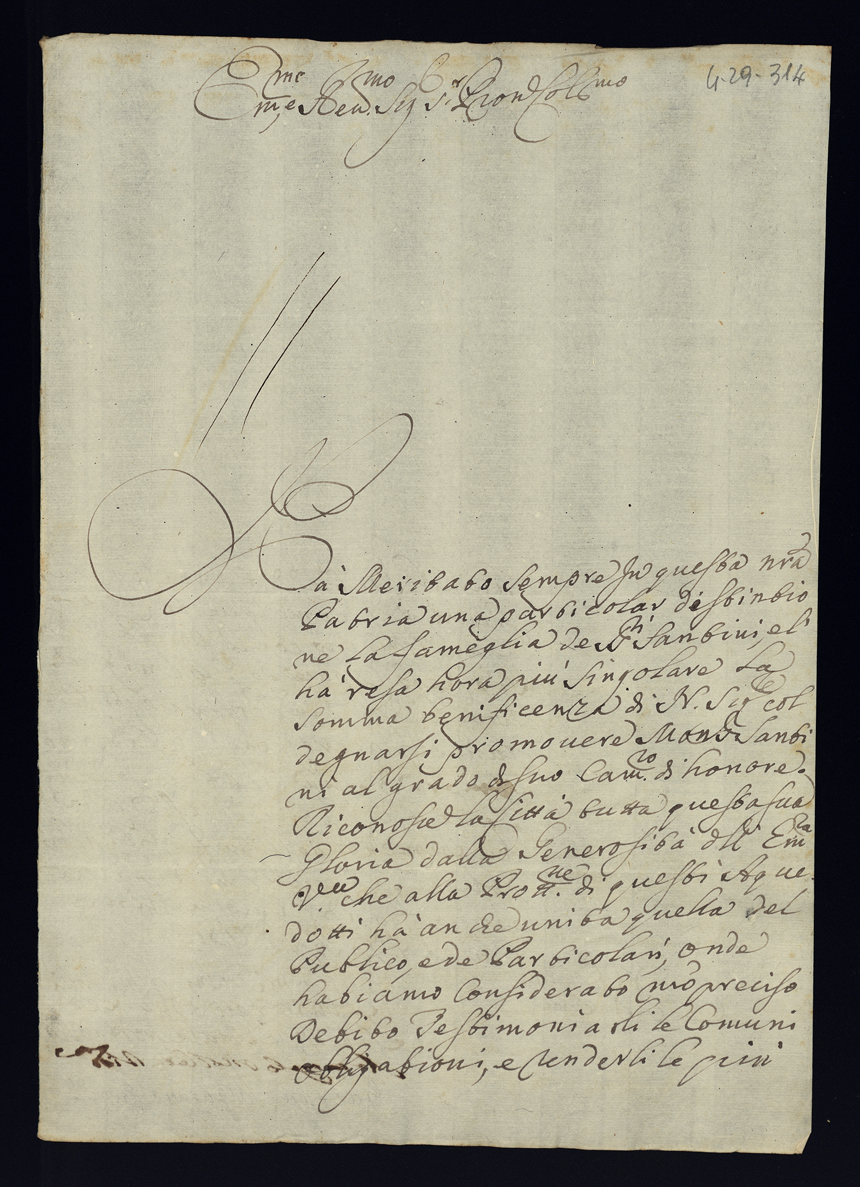 4-29-314
Em̃e, e Reu.mo Sig.r Sig.r Pron Coll.mo
Hà Meritato sempre In questa nr̃a
Patria una particolar distintio
ne la fameglia de SS.ri Santini, e l'
hà resa hora più singolare la
somma benificenza di N. Sig.re col
degnarsi promouere Mons.r Santi
ni al grado di suo Cam.ro di honore.
Riconosce la Città tutta questa sua
Gloria dalla Generosità dell' Em.za
V.ra che alla Prott.ne di questi Aque-
dotti hà anche unita quella del
Publico, e de Particolari, onde
habiamo Considerato nr̃o preciso
Debito Testimoniarli le Comuni
obligationi, e renderli le più